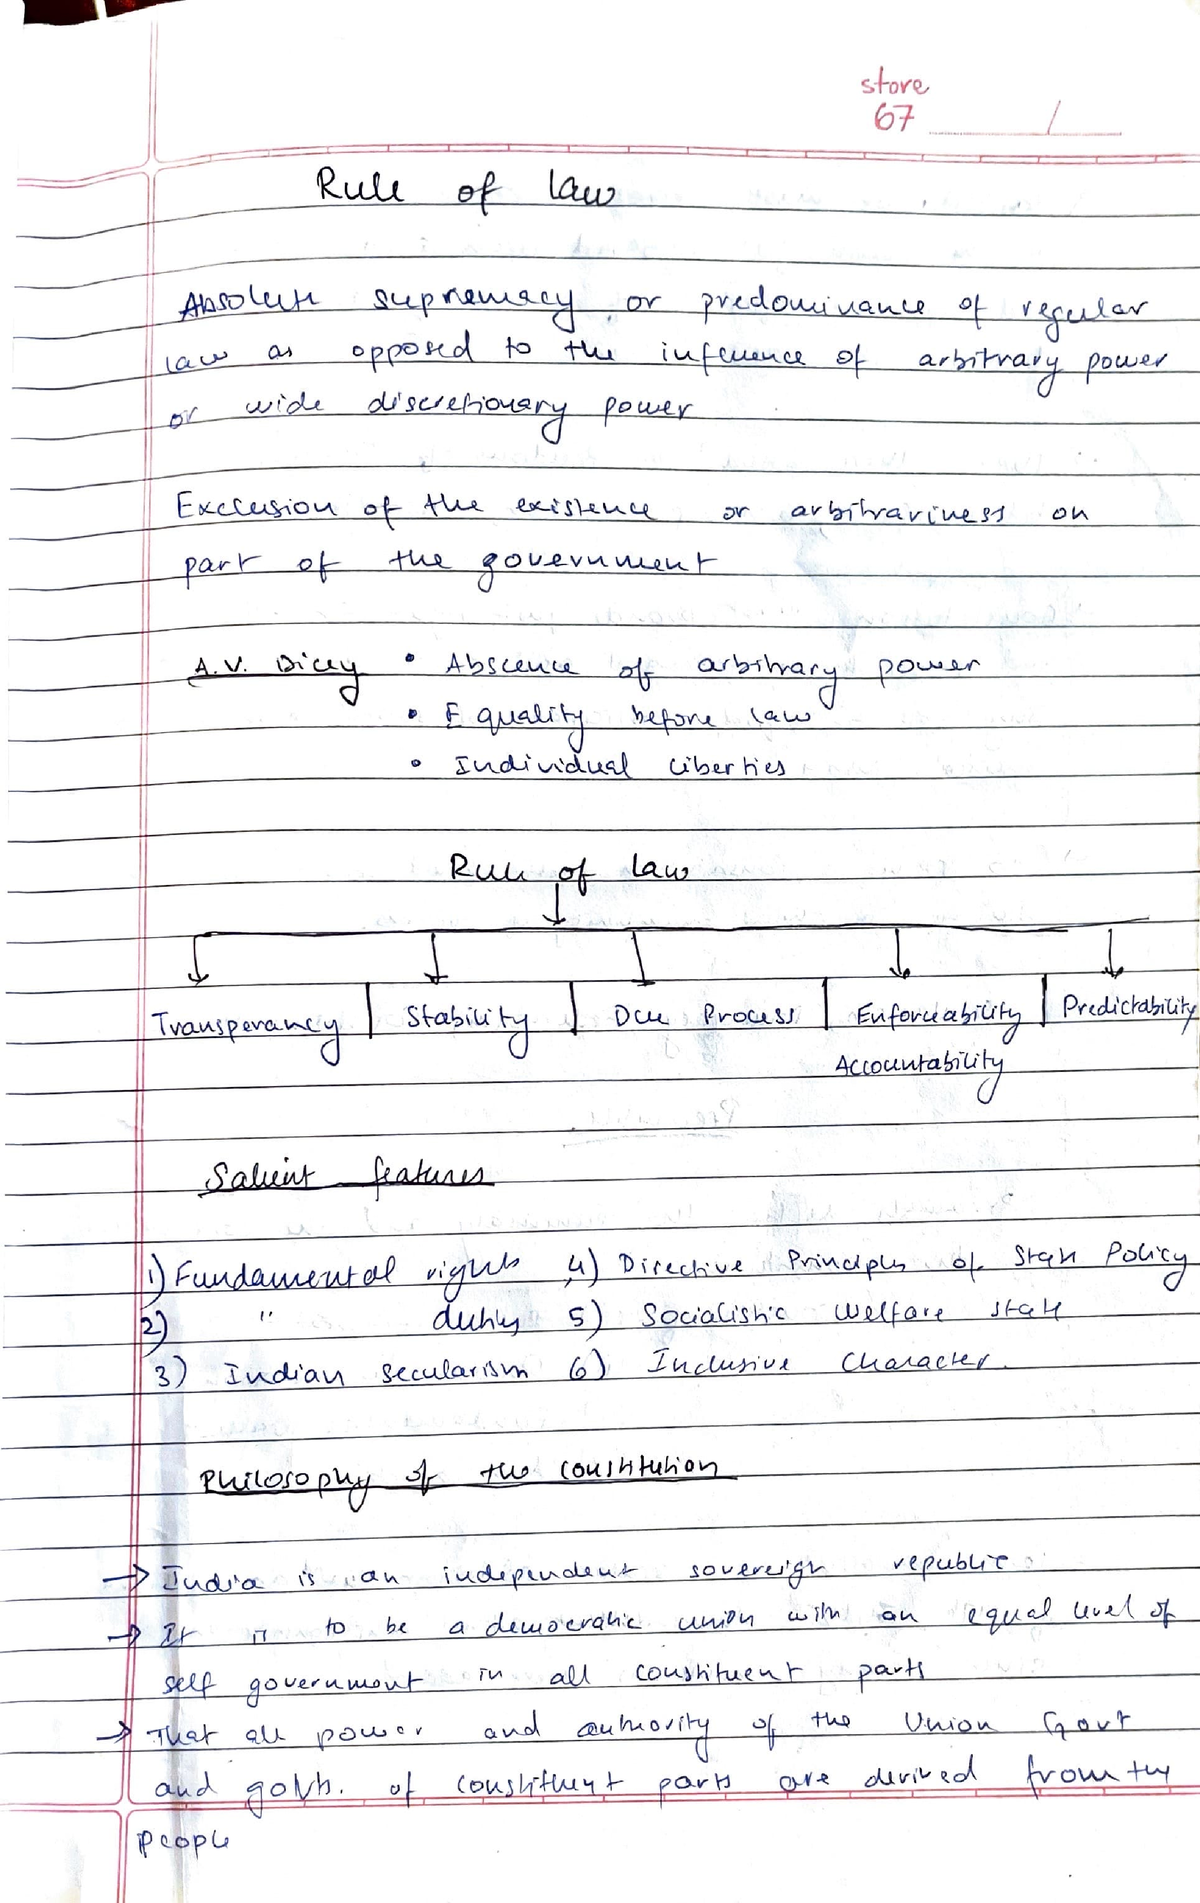 store
67
Rule of law
Absolute supremacy or predominance of regular
law as opposed to the infeuence of arbitrary power
or wide discretionary power
Exclusion of the existence or arbitrariness on
part of the government
A.V. Dicey • Abscence of arbitrary power
• Equality before law
• Individual liberties
Rule of law
Transperancy | Stability | Due Process | Enforceability | Predictability
Accountability
Salient features
1) Fundamental rights 4) Directive Principles of State Policy
2) " duties 5) Socialistic welfare state
3) Indian secularism 6) Inclusive Character.
Philosophy of the constitution
→ India is an independent sovereign republic
→ It is to be a democratic union with an equal level of
self government in all constituent parts
→ That all power and authority of the Union Govt
and govts. of constituent parts are derived from the
people